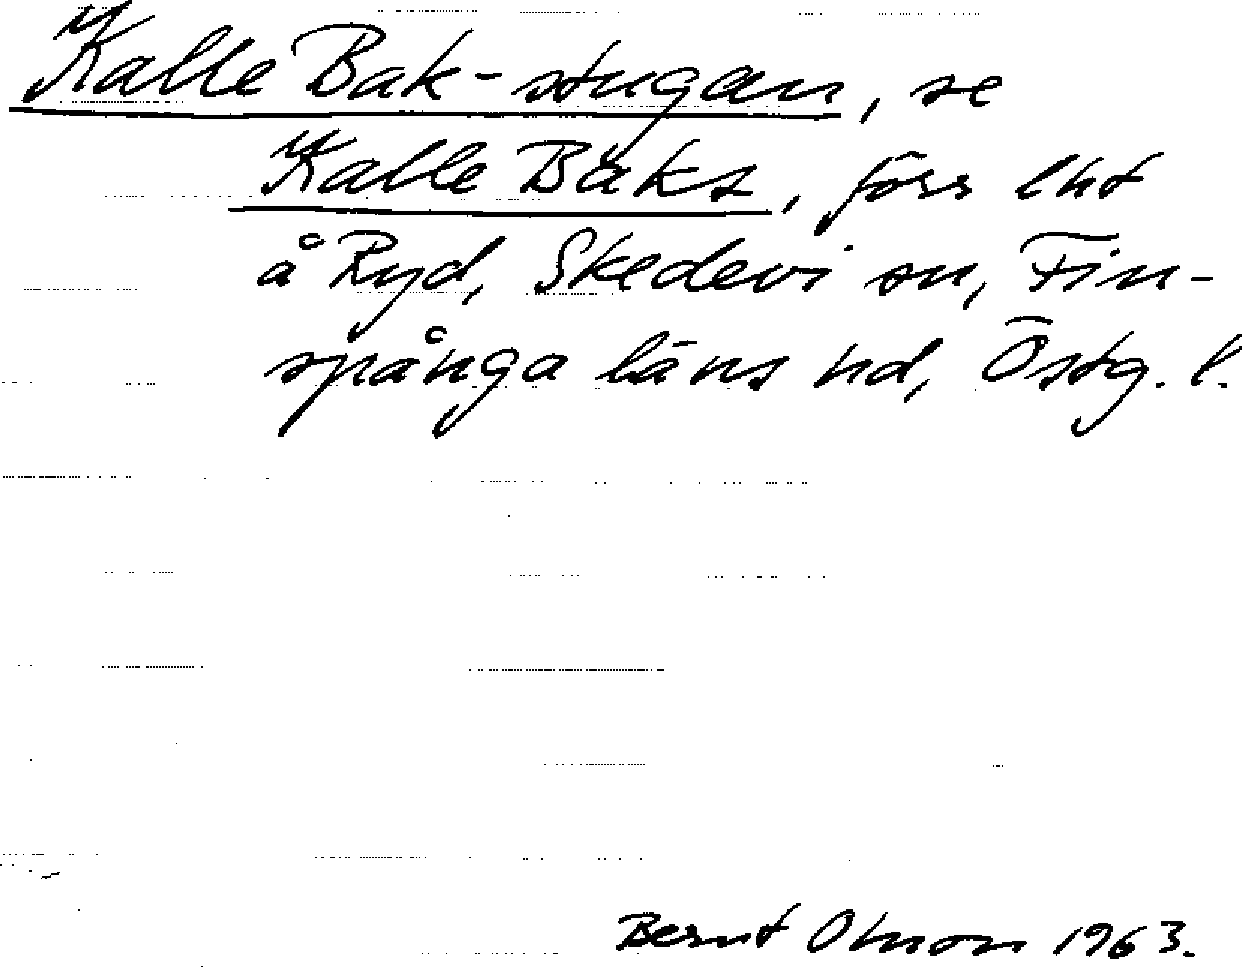 Kalle Bak-stugan, se
Kalle Baks, förs lht
å Ryd, Skedevi sn, Fin-
spånga läns hd, Östg. l.
Bernt Olsson 1963.